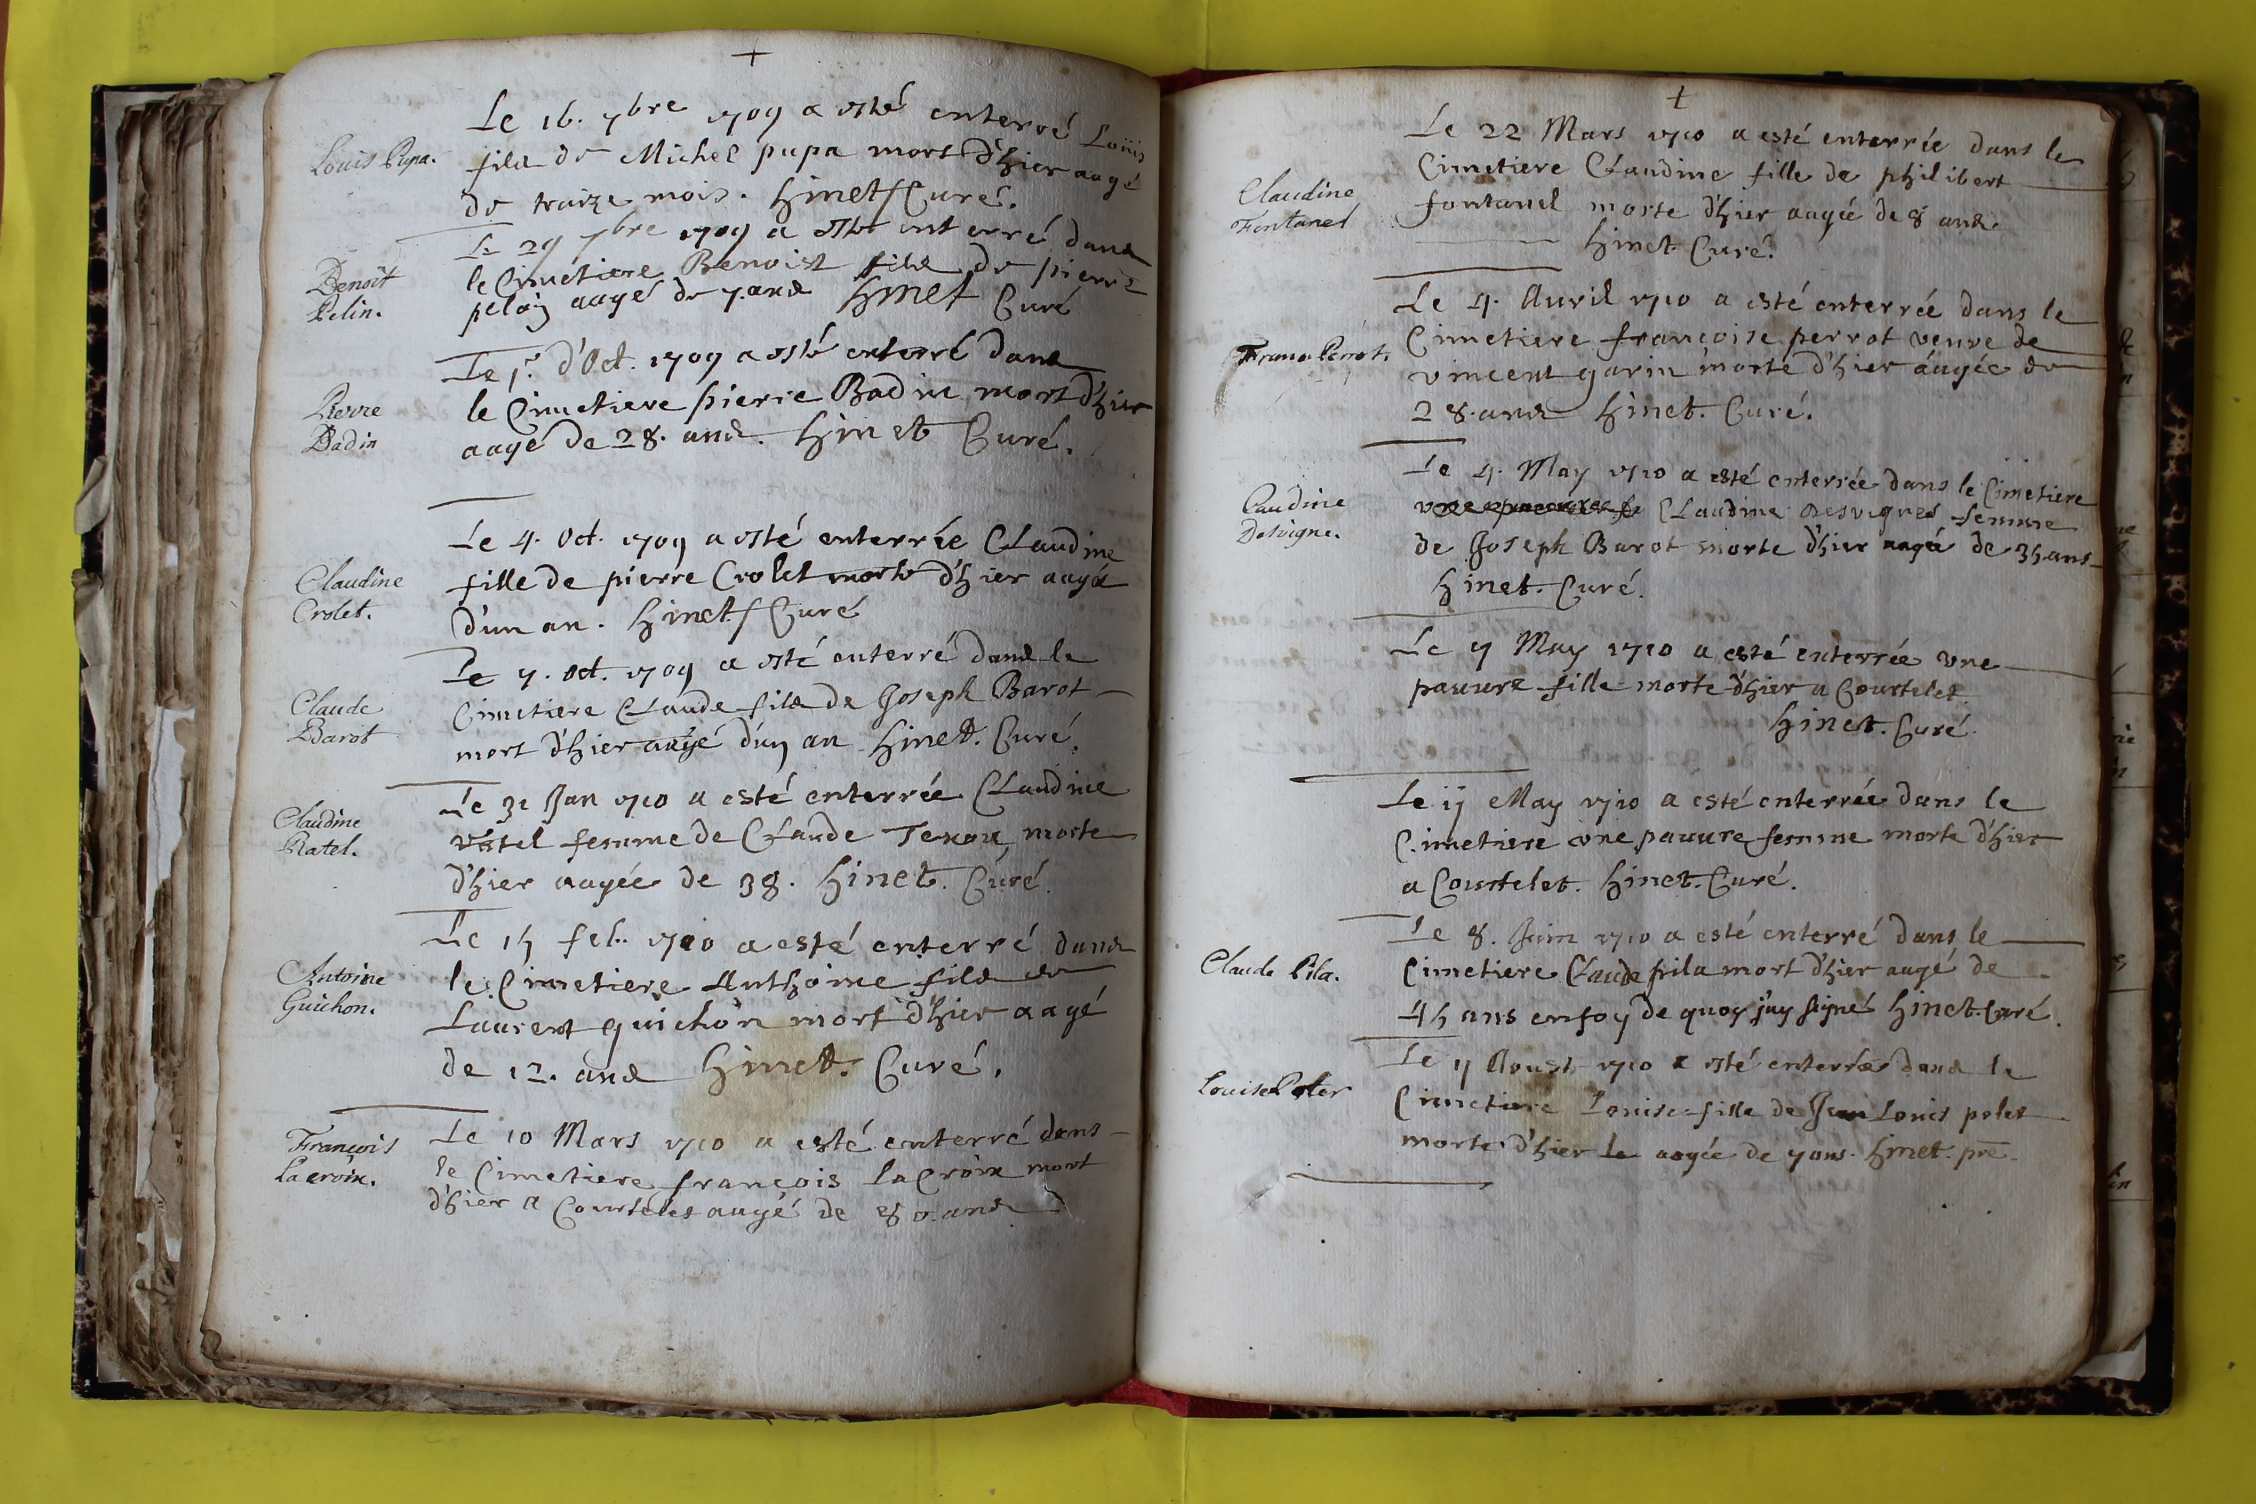 +
Le 16. 7bre 1709 a esté enterré Loüis
Louis Pupa.
fils de Michel pupa mort d'hier aagé
de traize mois. Hinet Curé.
Le 29 7bre 1709 a esté enterré dans
Benoit
le Cimetiere Benoist fils de pierre
Pelin.
aagé de 7. ans Hinet Curé
Le 1r. d'Oct. 1709 a esté enterré dans
Pierre
le Cimetiere pierre Badin mort d'hier
Badin
aagé de 28. ans. Hinet Curé.
Le 4. Oct. 1709 a esté enterrée Claudine
Claudine
fille de pierre Crolet morte d'hier aagée
Crolet.
d'un an. Hinet Curé
Le 7. Oct. 1709 a esté enterré dans le
Claude
Cimetiere Claude fils de Joseph Barot
Barot
mort d'hier aagé d'un an Hinet. Curé.
Le 31 Jan 1710 a esté enterrée Claudine
Claudine
femme de Claude morte
Ratel.
d'hier aagée de 38. Hinet. Curé.
Le 15 feb. 1710 a esté enterré dans
Antoine
le Cimetiere Anthoine fils de
Guichon.
Laurent guichon mort d'hier aagé
de 12. ans Hinet. Curé.
François
Le 10 Mars 1710 a esté enterré dans
Lacroix.
le Cimetiere françois la Croix mort
d'hier a Courtelet aagé de 80. ans
+
Le 22 Mars 1710 a esté enterrée dans le
Claudine
Cimetiere Claudine fille de philibert
Fontanel
fontanel morte d'hier aagée de 8 ans.
Hinet Curé.
Le 4. Avril 1710 a esté enterrée dans le
Cimetiere françoise perrot veuve de
Perrot.
vincent garin morte d'hier aagée de
28. ans Hinet. Curé.
Le 4. May 1710 a esté enterrée dans le Cimetiere
Caudine
Claudine desvignes femme
Desvigne.
de Joseph Barot morte d'hier aagée de 35 ans
Hinet. Curé.
Le 7 May 1710 a esté enterrée une
pauvre fille morte d'hier a Courtelet
Hinet. Curé.
Le 17 May 1710 a esté enterrée dans le
Cimetiere une pauvre femme morte d'hier
a Courtelet. Hinet. Curé.
Le 8. Juin 1710 a esté enterré dans le
Claude Pila.
Cimetiere Claude pila mort d'hier aagé de
45 ans en foy de quoy j'ay signé Hinet. Curé.
Le 7 Aoust 1710 a esté enterrée dans le
Louise
Cimetiere Louise fille de Jean Louis polet
morte d'hier aagée de 7 ans. Hinet. pre.